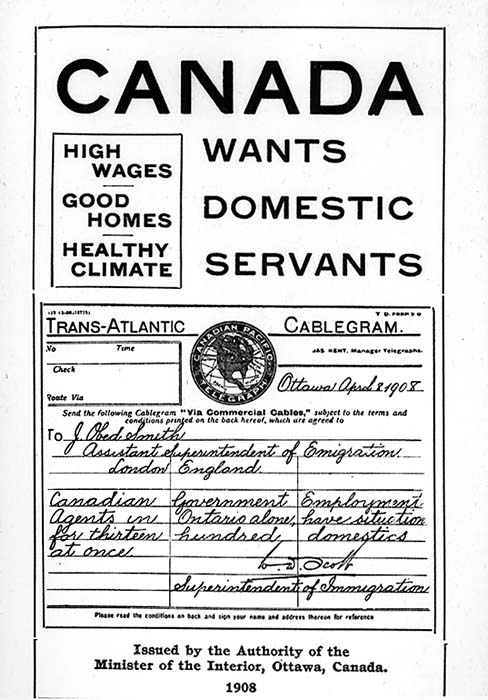 CANADA
HIGH
WAGES
GOOD
HOMES
HEALTHY
CLIMATE
WANTS
DOMESTIC
SERVANTS
T D. FORM 2 O
TRANS-ATLANTIC CABLEGRAM.
CANADIAN PACIFIC
TELEGRAPH
JAS. KENT, Manager Telegraphs.
No Time
Check
Route Via
Ottawa April 8 1908
Send the following Cablegram "Via Commercial Cables," subject to the terms and
conditions printed on the back hereof, which are agreed to
To J. Obed Smith
Assistant Superintendent of Emigration
London England
Canadian Government Employment
Agents in Ontario alone, have situation
for thirteen hundred domestics
at once
W. D. Scott
Superintendent of Immigration
Please read the conditions on back and sign your name and address thereon for reference
Issued by the Authority of the
Minister of the Interior, Ottawa, Canada.
1908